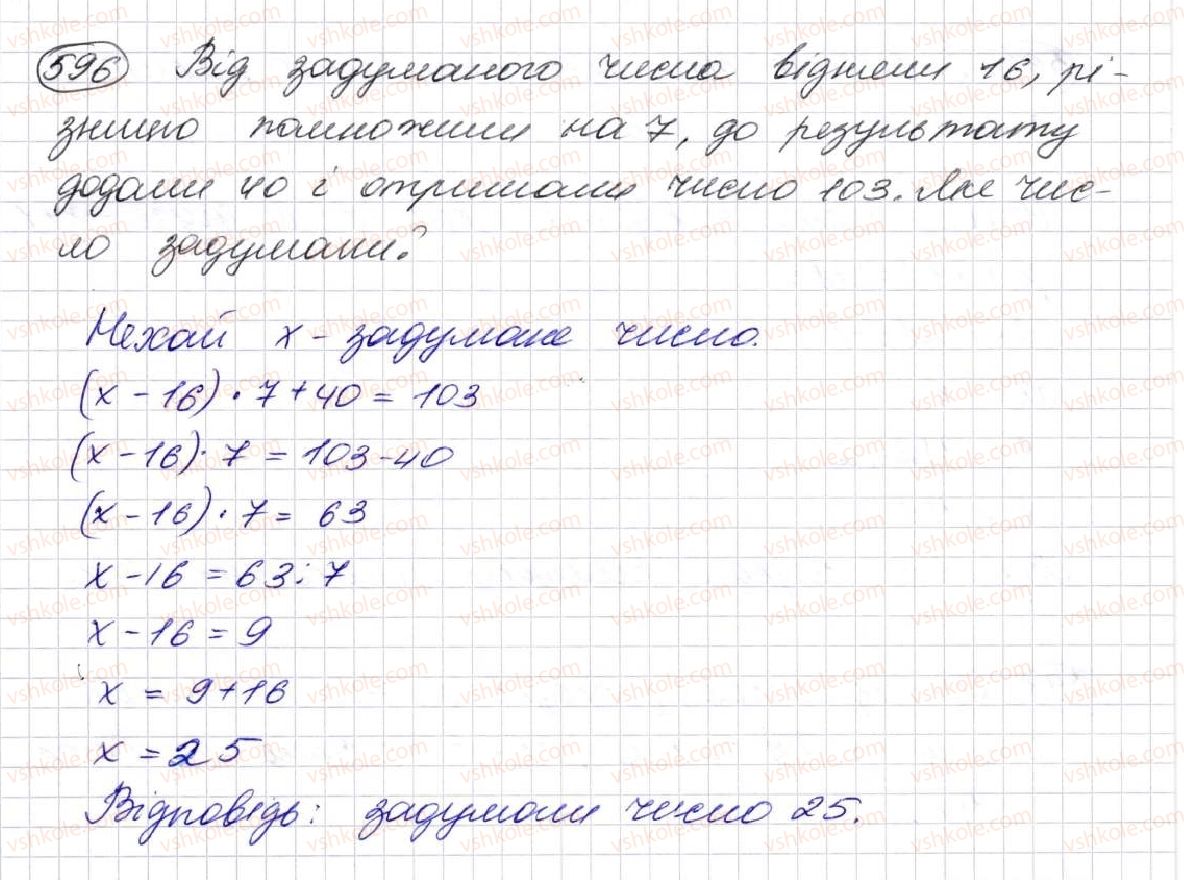 596 Від задуманого числа відняли 16, рі-
зницю помножили на 7, до результату
додали 40 і отримали число 103. Яке чис-
ло задумали?
Нехай x - задумане число.
(x - 16) · 7 + 40 = 103
(x - 16) · 7 = 103 - 40
(x - 16) · 7 = 63
x - 16 = 63 : 7
x - 16 = 9
x = 9 + 16
x = 25
Відповідь: задумали число 25.